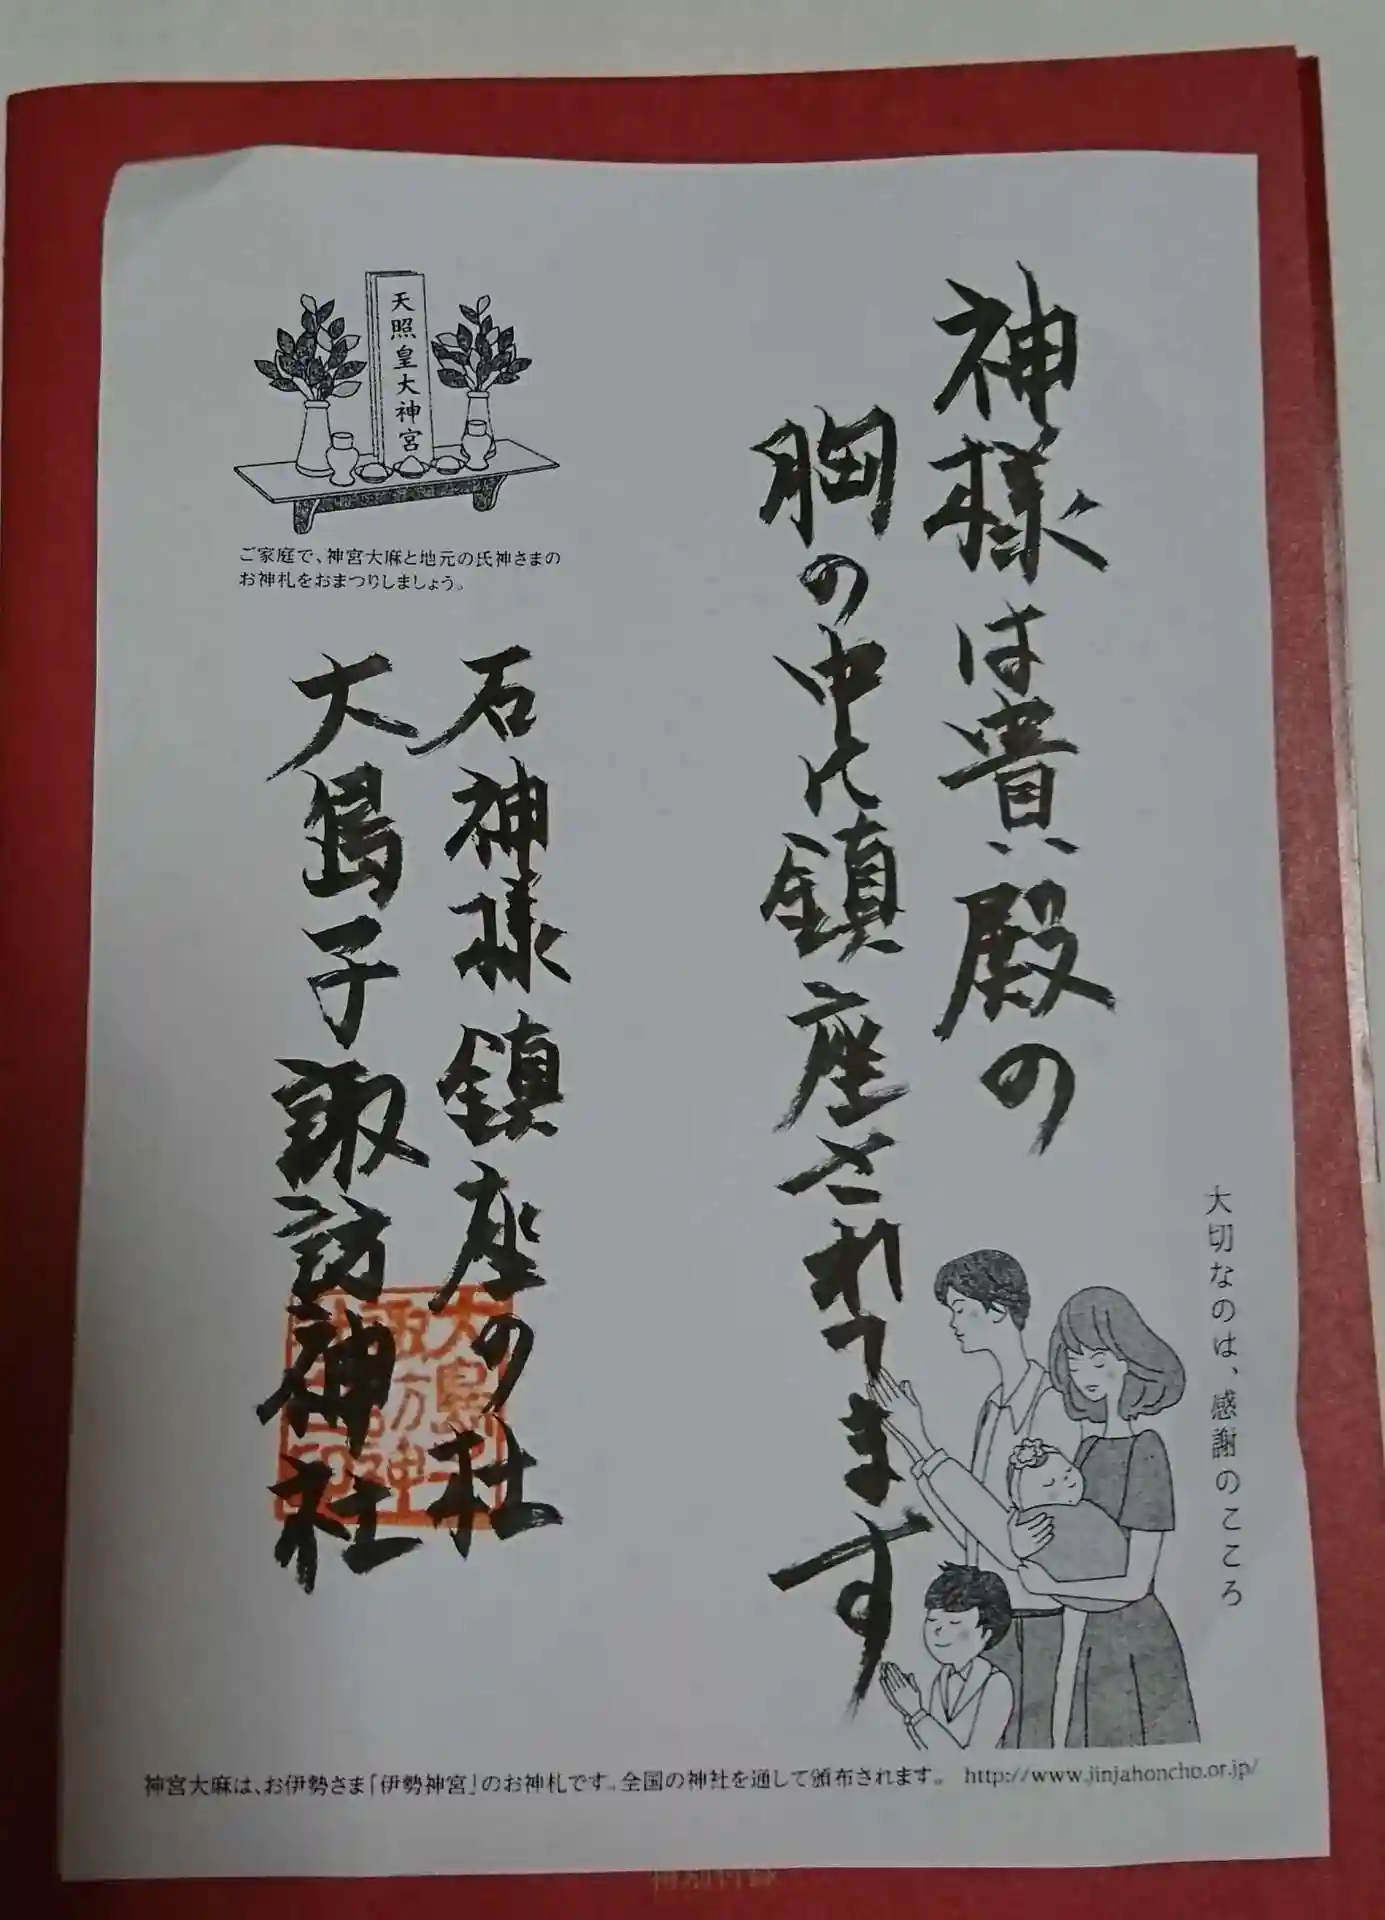 神様は貴殿の
胸の中に鎮座されてます
大切なのは、感謝のこころ
天照皇大神宮
ご家庭で、神宮大麻と地元の氏神さまの
お神札をおまつりしましょう。
石神様鎮座の社
大島子諏訪神社
神宮大麻は、お伊勢さま「伊勢神宮」のお神札です。全国の神社を通して頒布されます。 http://www.jinjahoncho.or.jp/
特別付録